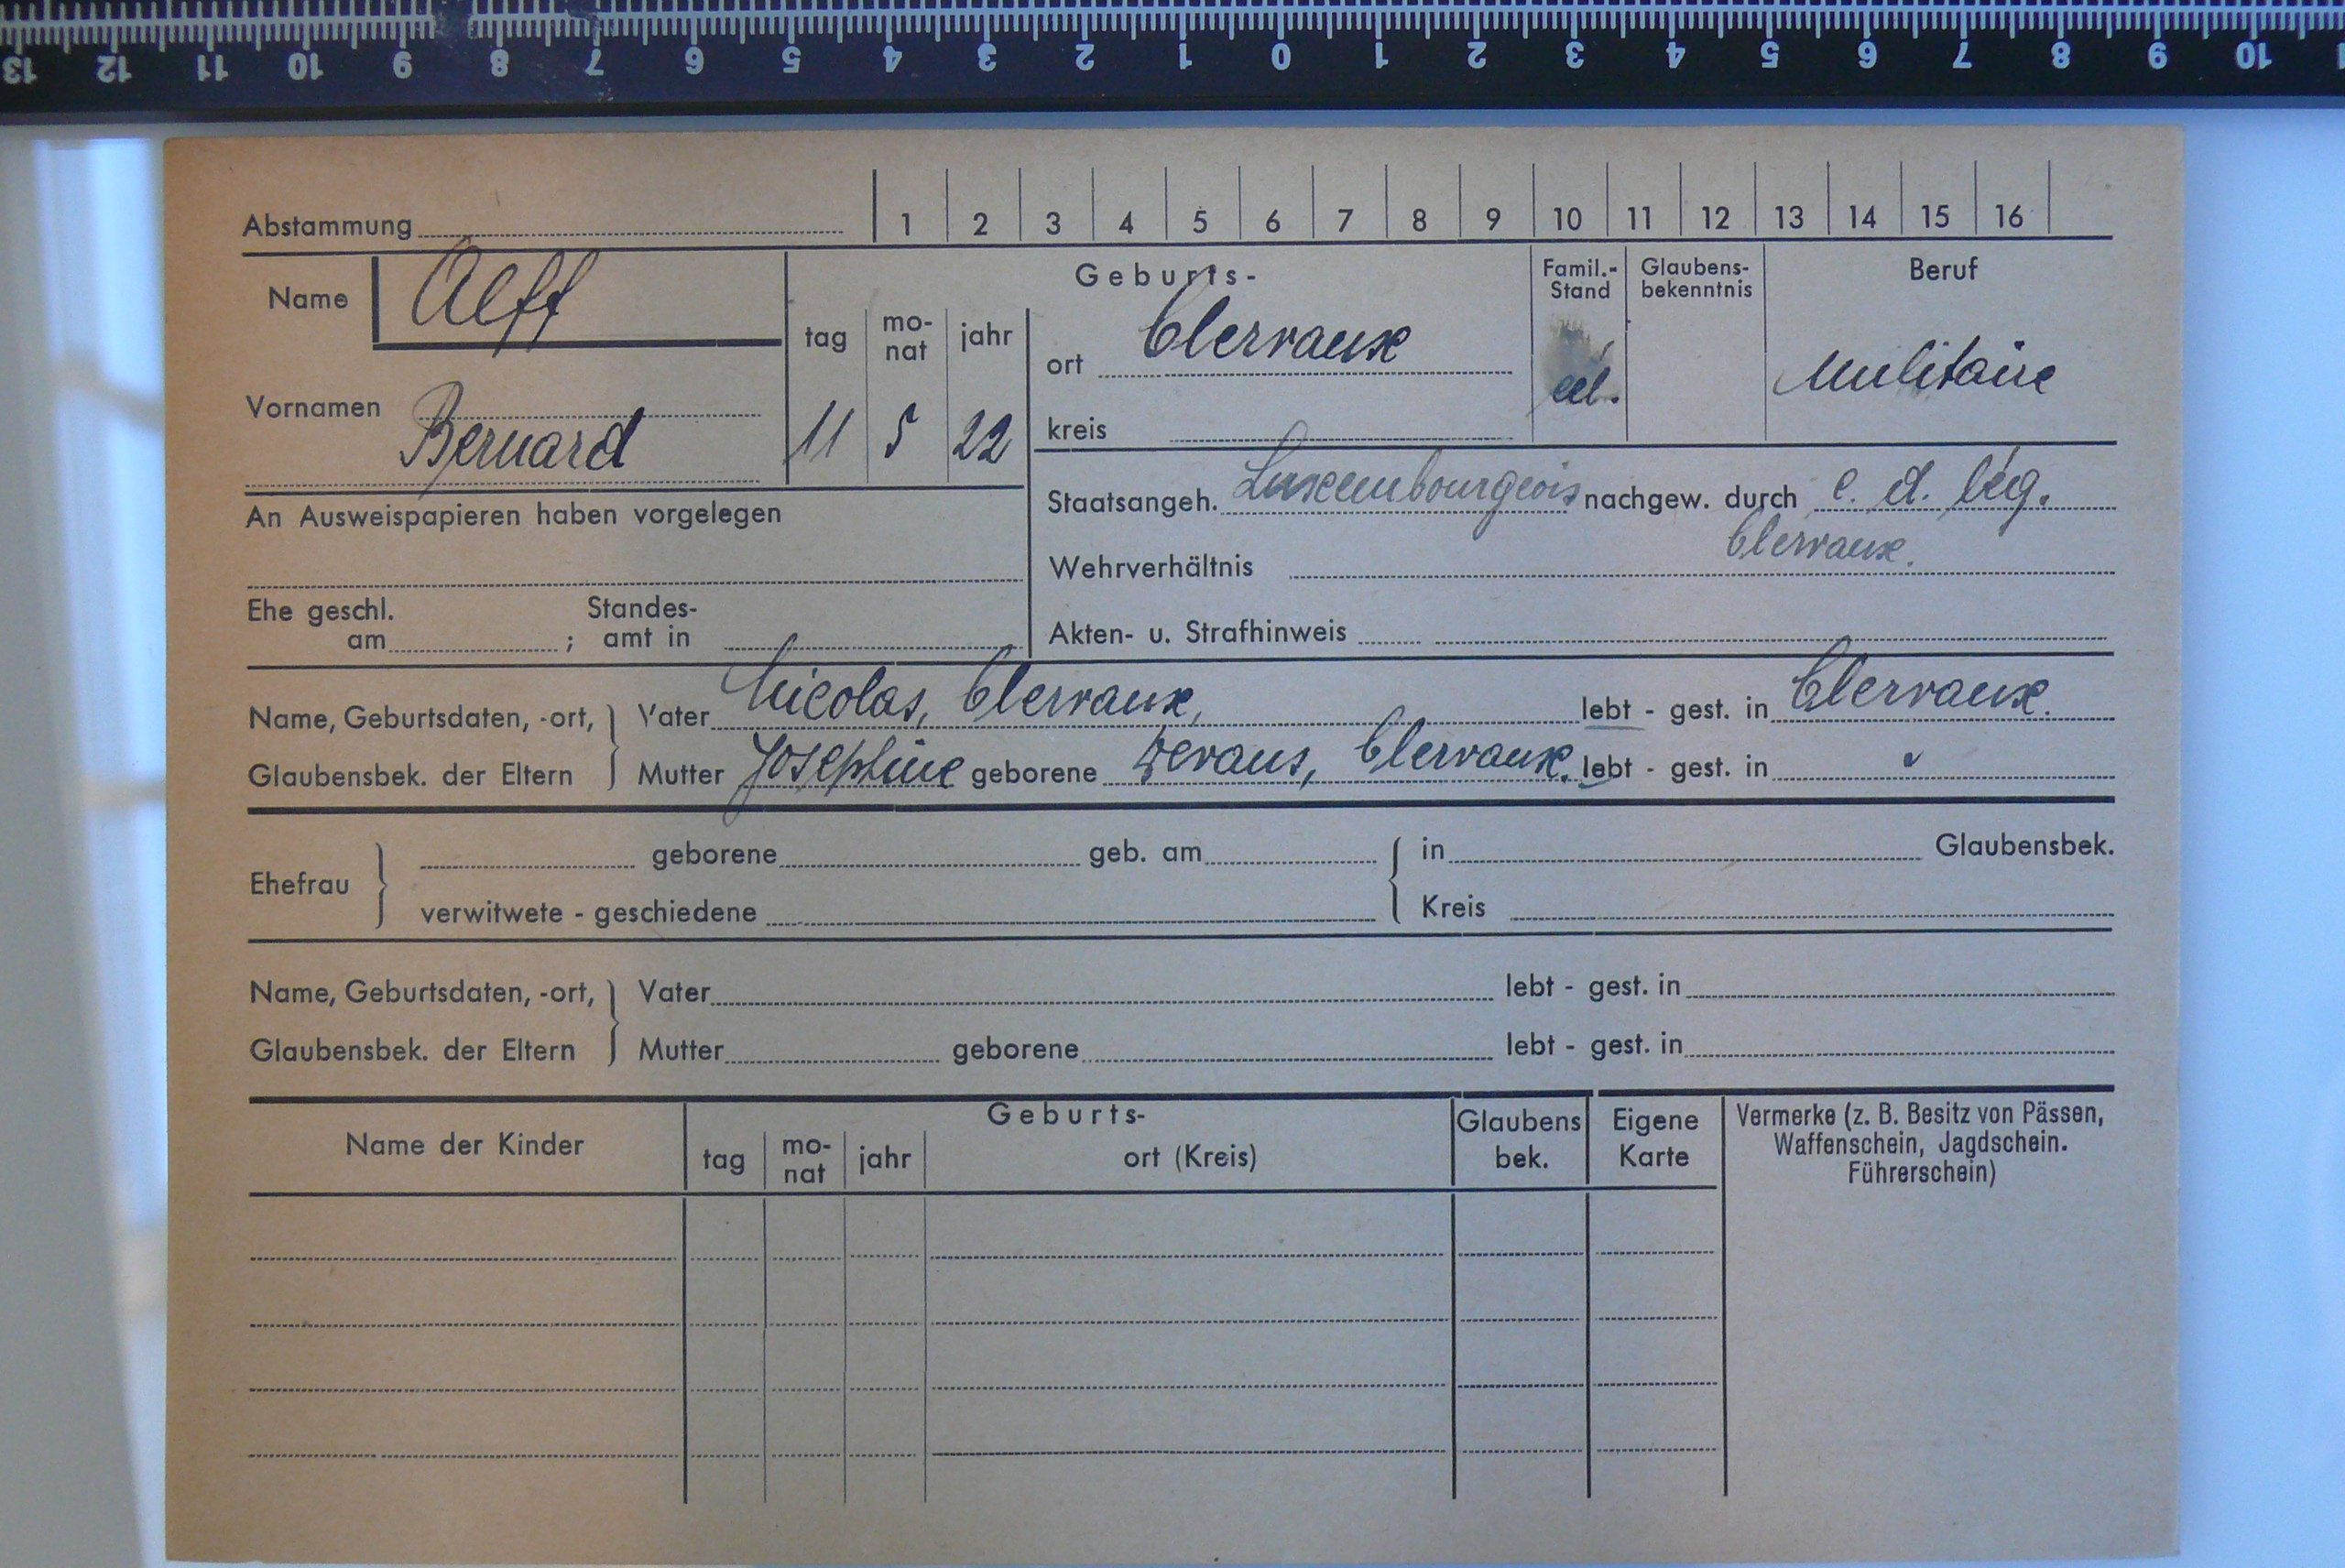 13 12 11 10 9 8 7 6 5 4 3 2 1 0 1 2 3 4 5 6 7 8 9 10
Abstammung 1 2 3 4 5 6 7 8 9 10 11 12 13 14 15 16
Name Alff
Vornamen Bernard
Geburts-
tag mo- jahr
nat
11 5 22
ort Clervaux
kreis
Famil.-
Stand
cél.
Glaubens-
bekenntnis
Beruf
Militaire
An Ausweispapieren haben vorgelegen
Staatsangeh. Luxembourgeois nachgew. durch c. d. lég.
Clervaux.
Wehrverhältnis
Ehe geschl. Standes-
am ; amt in
Akten- u. Strafhinweis
Name, Geburtsdaten, -ort, Vater Nicolas, Clervaux, lebt - gest. in Clervaux.
Glaubensbek. der Eltern Mutter Joséphine geborene Clervaux. lebt - gest. in "
Ehefrau geborene geb. am in Glaubensbek.
verwitwete - geschiedene Kreis
Name, Geburtsdaten, -ort, Vater lebt - gest. in
Glaubensbek. der Eltern Mutter geborene lebt - gest. in
Name der Kinder
Geburts-
tag mo- jahr ort (Kreis)
nat
Glaubens
bek.
Eigene
Karte
Vermerke (z. B. Besitz von Pässen,
Waffenschein, Jagdschein.
Führerschein)